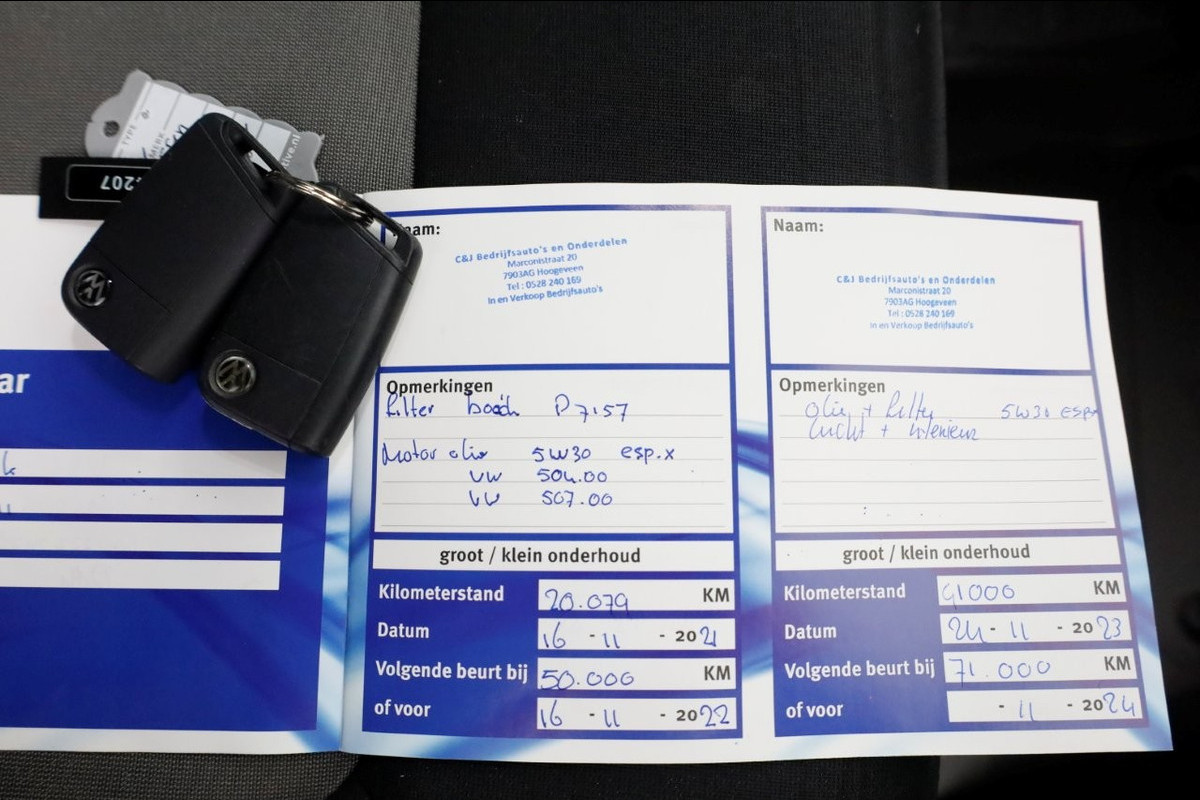 TYPE
MERK
tive.nl
207
ar
Naam:
C&J Bedrijfsauto's en Onderdelen
Marconistraat 20
7903AG Hoogeveen
Tel : 0528 240 169
In en Verkoop Bedrijfsauto's
Opmerkingen
Filter bosch P7157
Motor olie 5W30 esp.x
VW 504.00
VW 507.00
groot / klein onderhoud
Kilometerstand 20.079 KM
Datum 16 - 11 - 2021
Volgende beurt bij 50.000 KM
of voor 16 - 11 - 2022
Naam:
C&J Bedrijfsauto's en Onderdelen
Marconistraat 20
7903AG Hoogeveen
Tel : 0528 240 169
In en Verkoop Bedrijfsauto's
Opmerkingen
olie + filter 5W30 ESP
lucht + interieur
groot / klein onderhoud
Kilometerstand 41000 KM
Datum 24 - 11 - 2023
Volgende beurt bij 71.000 KM
of voor - 11 - 2024